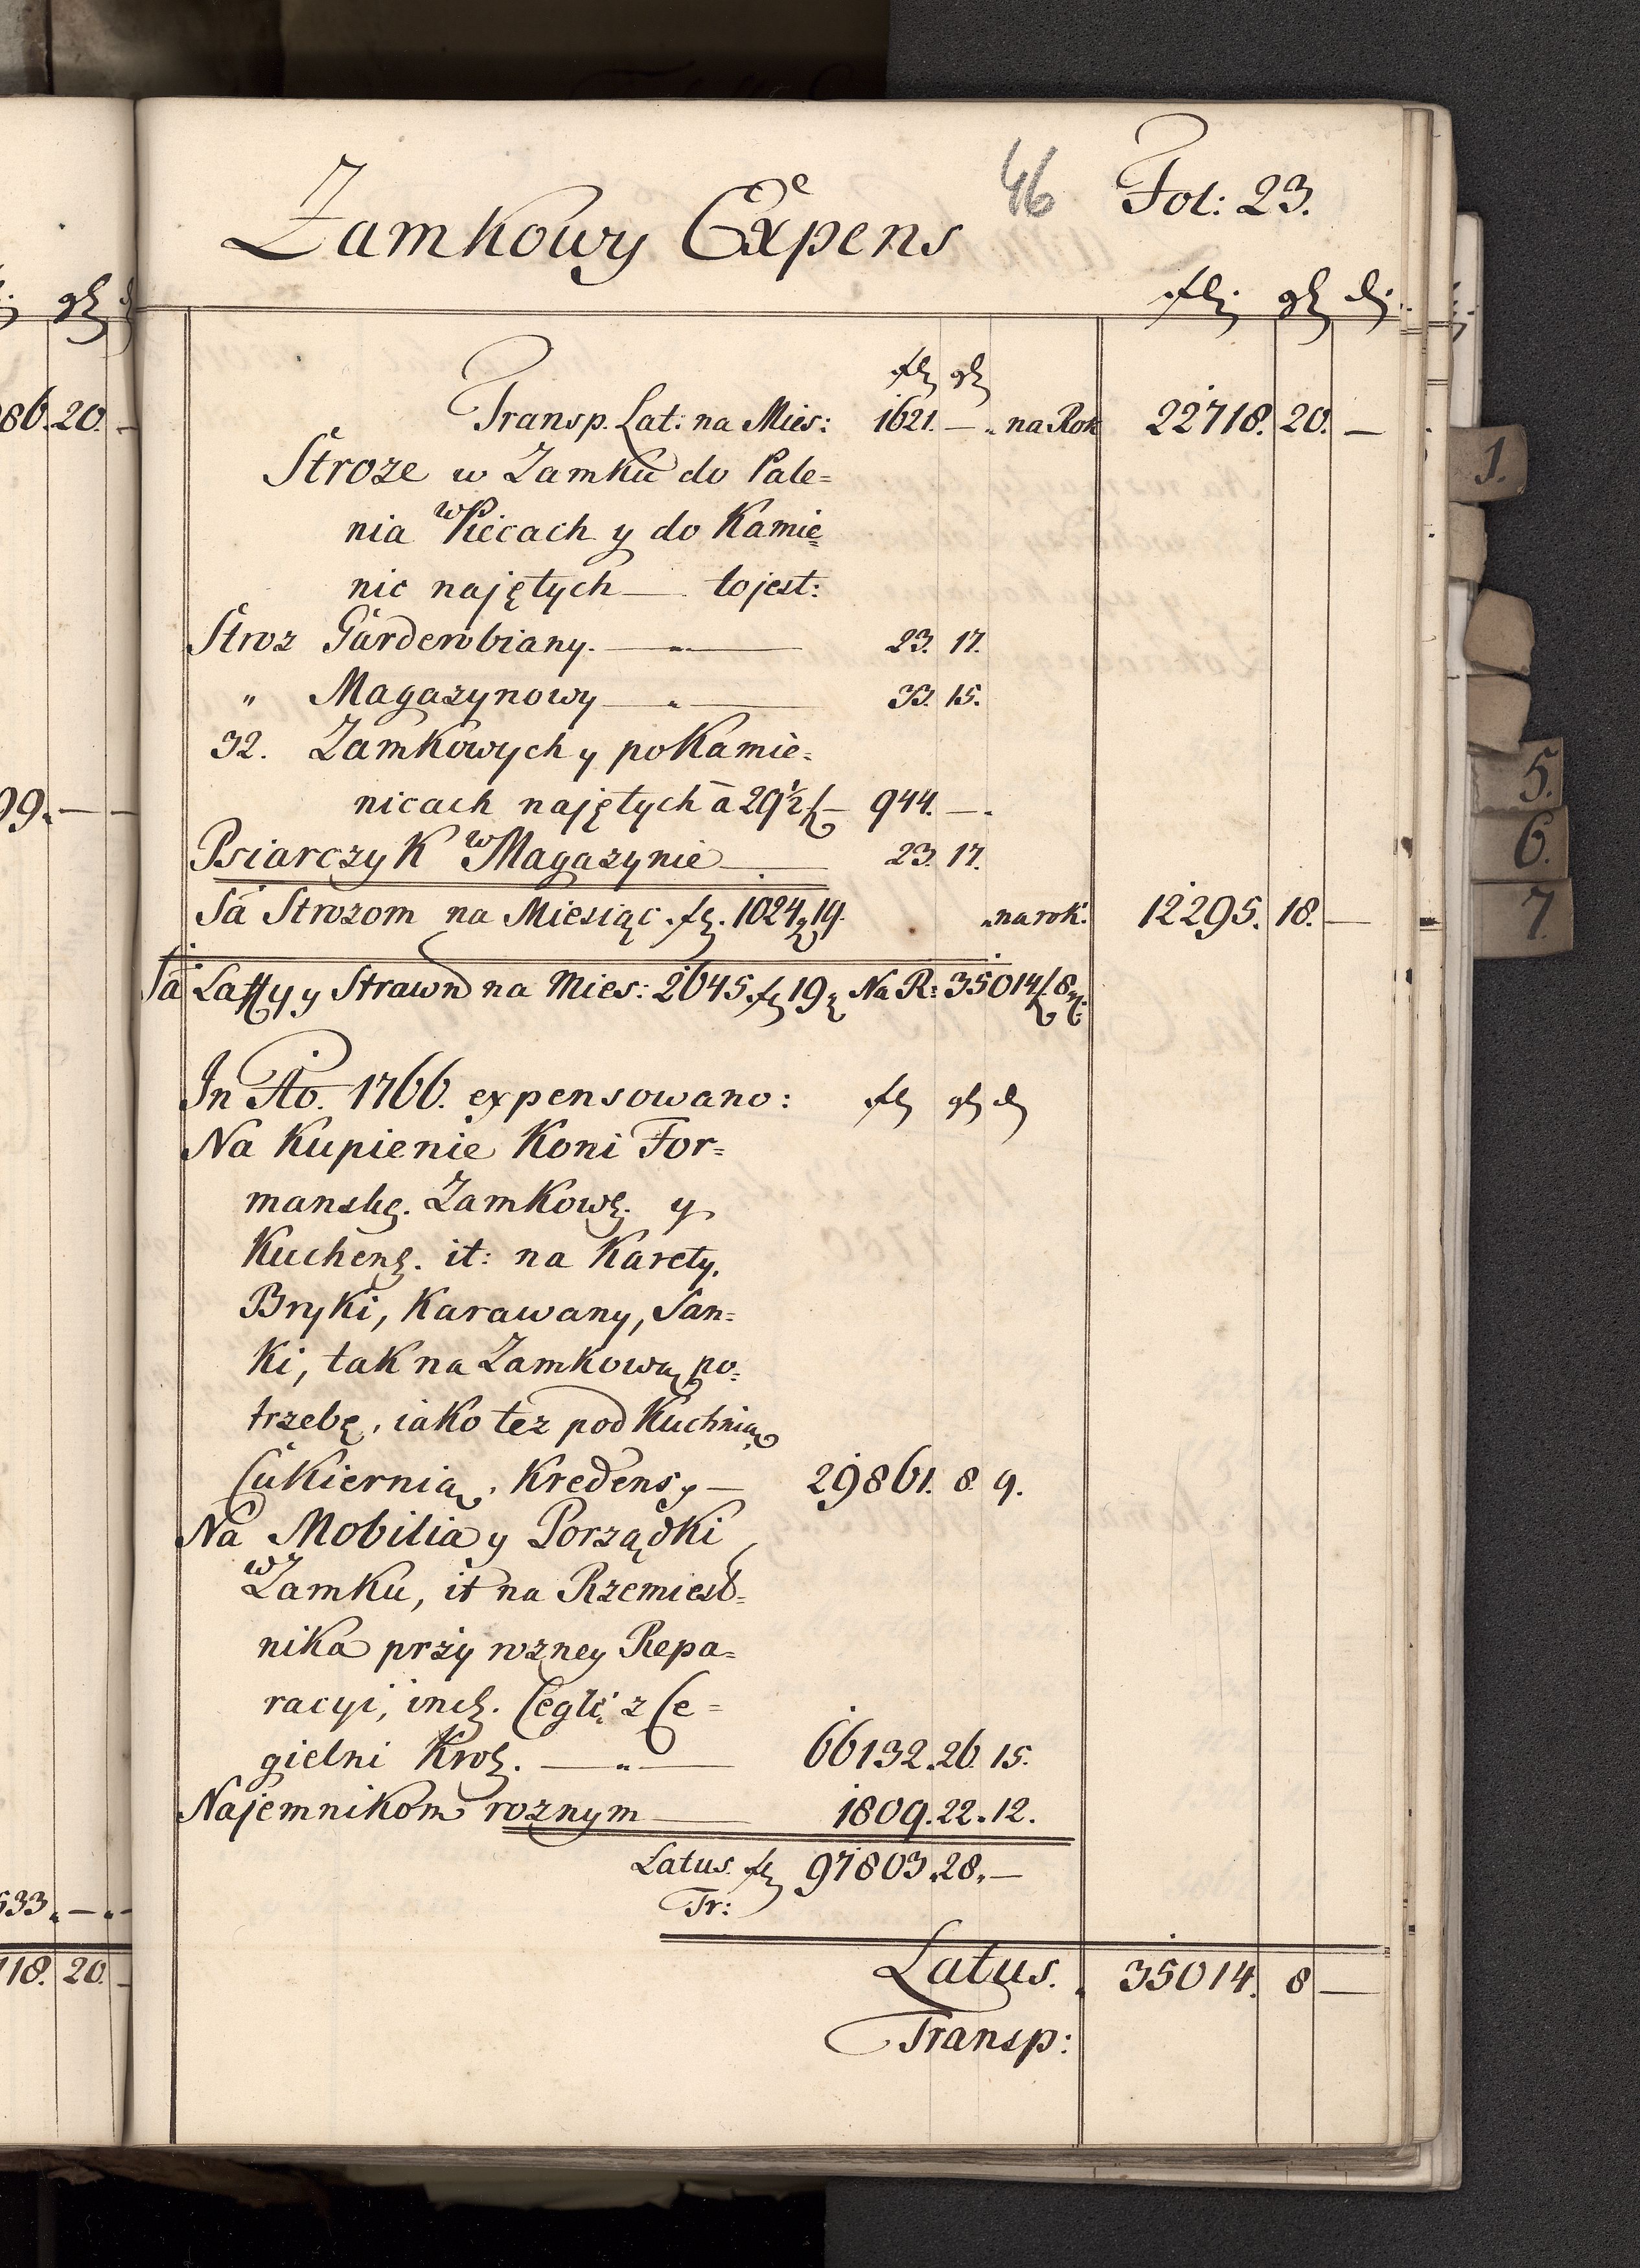 46 Fol: 23.
Zamkowy Expens
fl: gł dł:
fl gł
Transp. Lat: na Mies: 1621. — . na Rok 22718. 20. —
Stroze w Zamku do Pale=
nia w Piecach y do Kamie=
nic najętych — to jest:
Stroz Garderobiany. — " — 23. 17.
" Magazynowy — " — 33. 15.
32. Zamkowych y po Kamie=
nicach najętych à 29½ f — 944. — .
Psiarczyk w Magazynie — 23. 17.
Sa Strozom na Miesiąc. fl. 1024 19. na rok: 12295. 18. —
Sa Laffy y Strawn na Mies: 2645 fl 19 g Na R: 35014 f 8 g:
In Ao. 1766. expensowano: fl gł d
Na Kupienie Koni For=
manskg. Zamkowg. y
Kucheng. it: na Karety,
Bryki, Karawany, San=
ki, tak na Zamkową po=
trzebę, iako tez pod Kuchnią
Cukiernią, Kredens, — 29861. 8. 9.
Na Mobilia y Porządki
w Zamku, it na Rzemiesl=
nika przy rozney Repa=
racyi, incl. Cegłę z Ce=
gielni Krol. — " — 66132. 26. 15.
Najemnikom roznym — 1809. 22. 12.
Latus. fl 97803. 28. —
Tr:
Latus. 35014. 8 —
Transp:
86. 20. —
99. — —
533. — . —
118. 20. —
gł
1.
5.
6.
7.